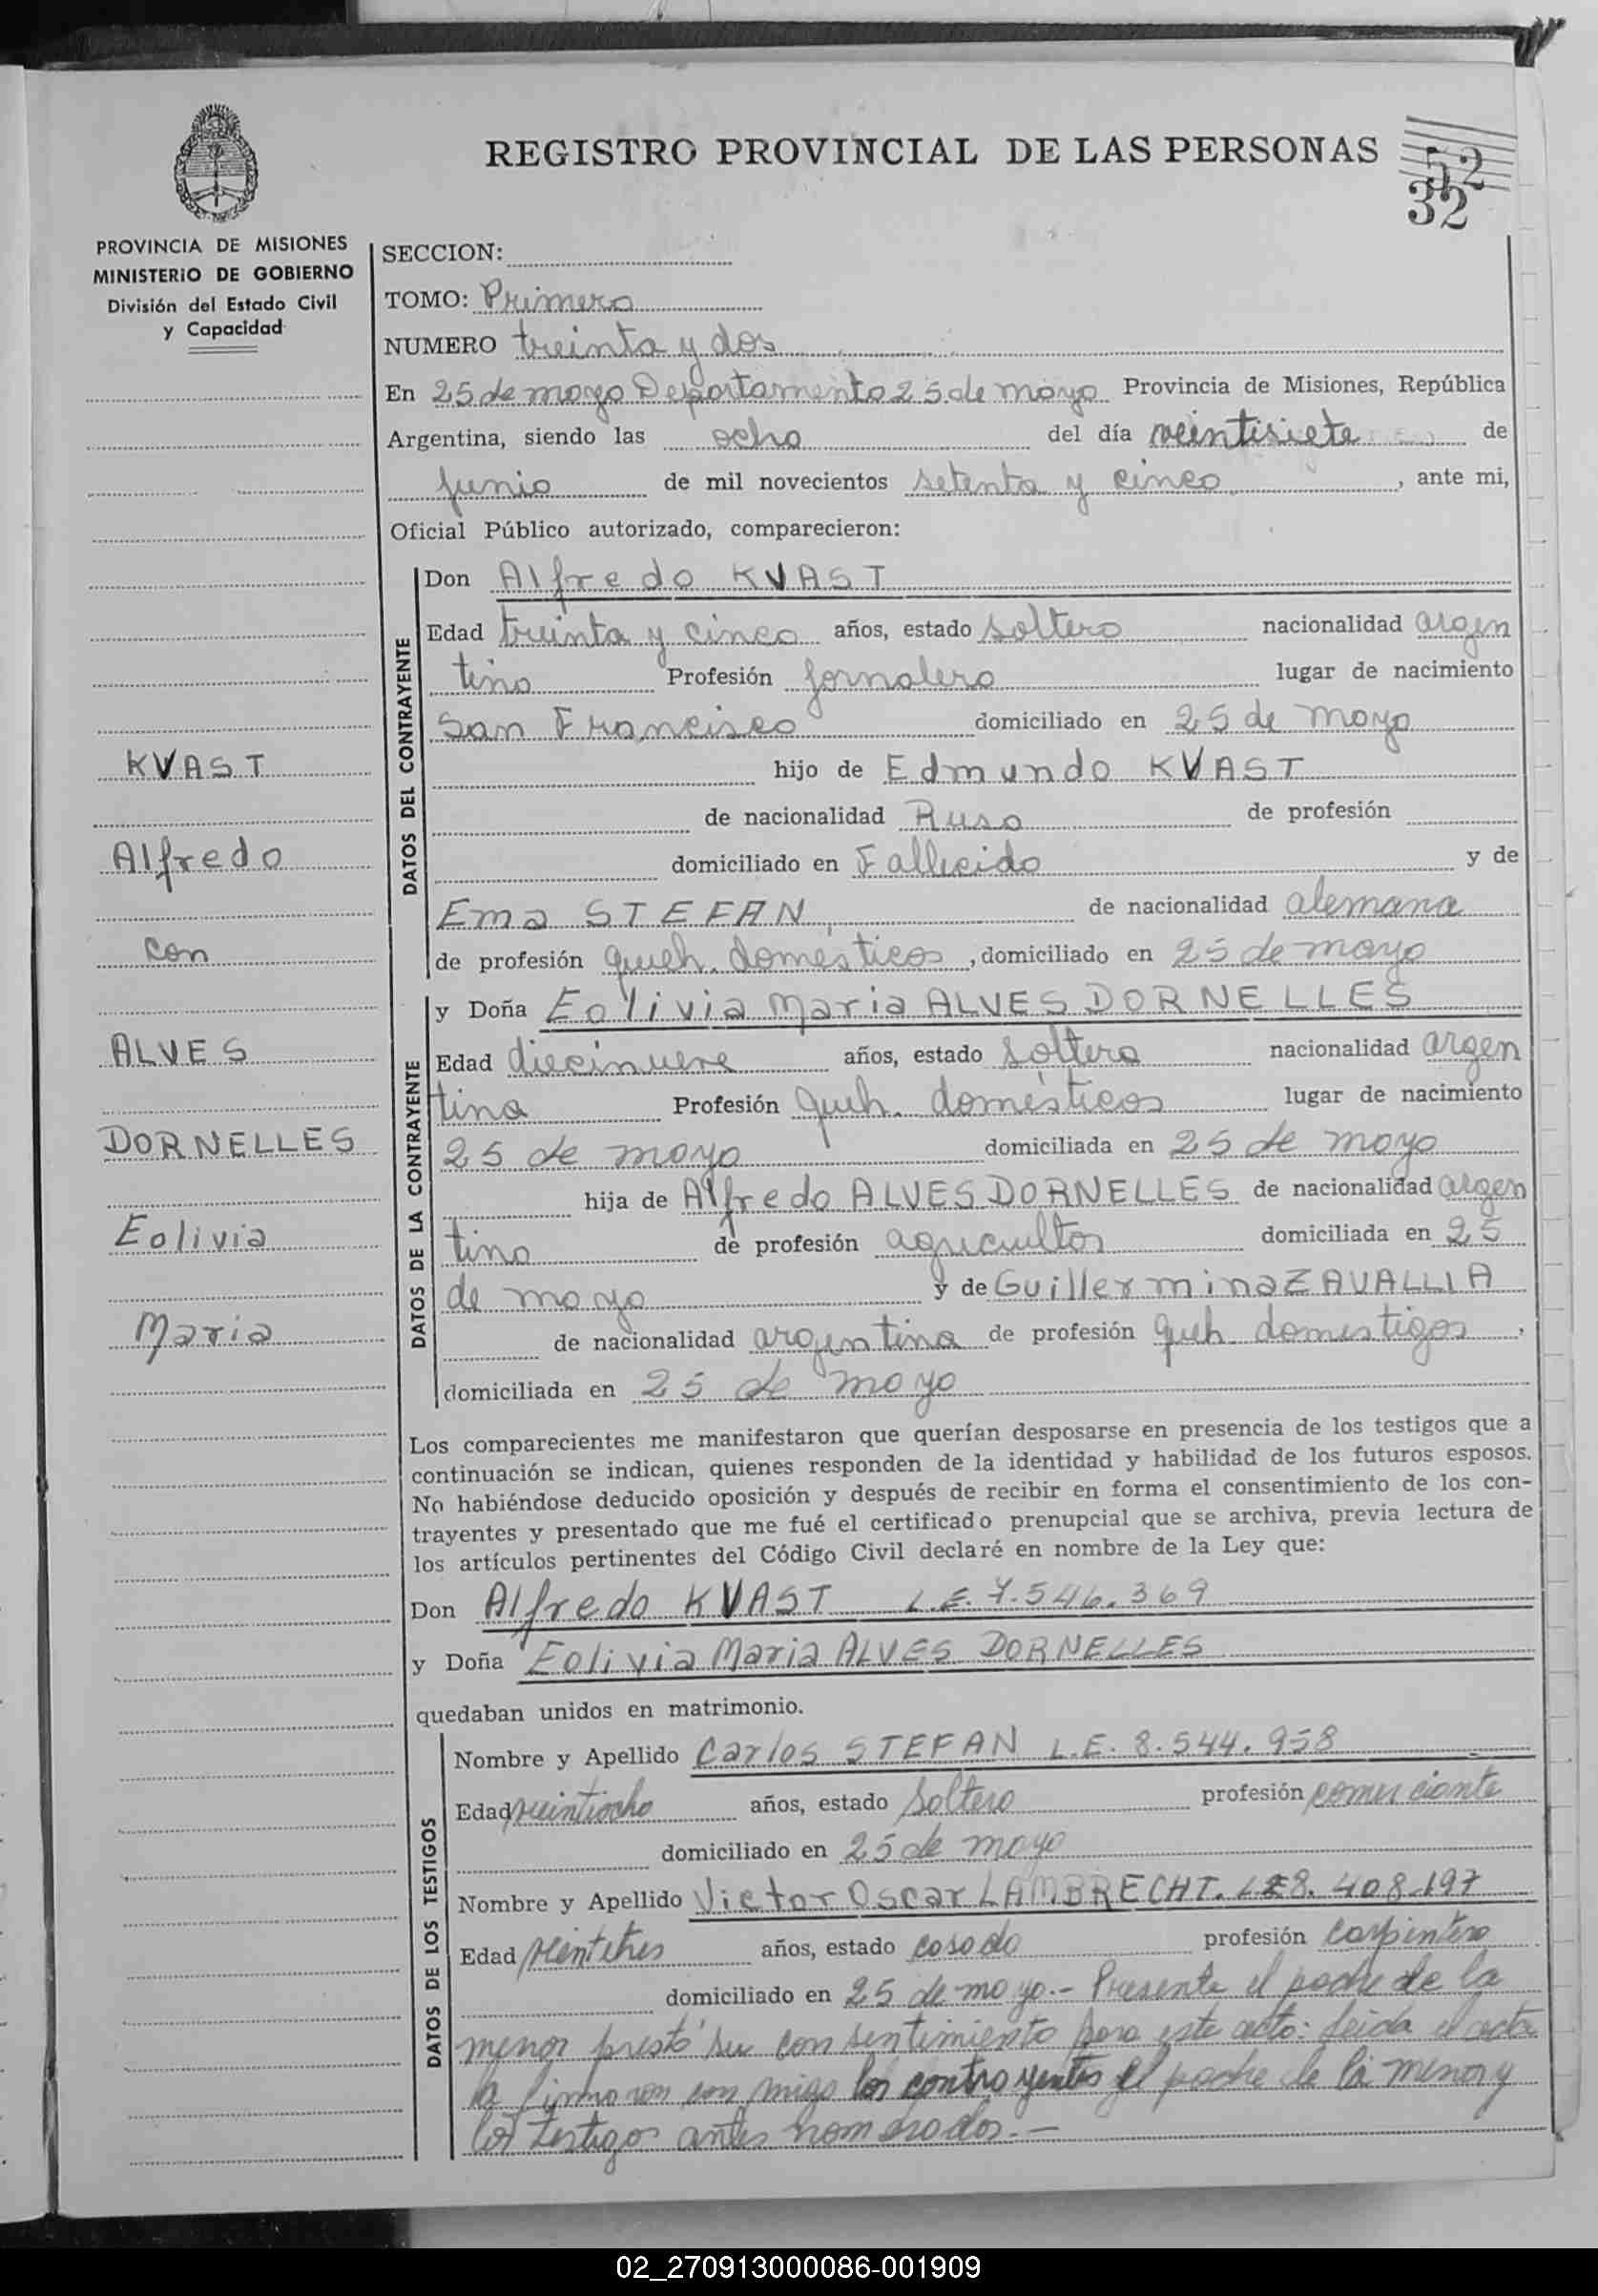 REGISTRO PROVINCIAL DE LAS PERSONAS
52
32
PROVINCIA DE MISIONES
MINISTERIO DE GOBIERNO
División del Estado Civil
y Capacidad
KVAST
Alfredo
con
ALVES
DORNELLES
Eolivia
Maria
SECCION:
TOMO: Primero
NUMERO treinta y dos
En 25 de mayo Departamento 25 de mayo Provincia de Misiones, República
Argentina, siendo las ocho del día veintisiete de
Junio de mil novecientos setenta y cinco, ante mi,
Oficial Público autorizado, comparecieron:
DATOS DEL CONTRAYENTE
Don Alfredo KVAST
Edad treinta y cinco años, estado soltero nacionalidad argen
tino Profesión jornalero lugar de nacimiento
San Francisco domiciliado en 25 de mayo
hijo de Edmundo KVAST
de nacionalidad Ruso de profesión
domiciliado en Fallecido y de
Ema STEFAN, de nacionalidad alemana
de profesión queh. domésticos, domiciliado en 25 de mayo
DATOS DE LA CONTRAYENTE
y Doña Eolivia Maria ALVES DORNELLES
Edad diecinueve años, estado soltera nacionalidad argen
tina Profesión queh. domésticos lugar de nacimiento
25 de mayo domiciliada en 25 de mayo
hija de Alfredo ALVES DORNELLES de nacionalidad argen
tino de profesión agricultor domiciliada en 25
de mayo y de Guillermina ZAVALLIA
de nacionalidad argentina de profesión queh. domestigos,
domiciliada en 25 de mayo
Los comparecientes me manifestaron que querían desposarse en presencia de los testigos que a
continuación se indican, quienes responden de la identidad y habilidad de los futuros esposos.
No habiéndose deducido oposición y después de recibir en forma el consentimiento de los con-
trayentes y presentado que me fué el certificado prenupcial que se archiva, previa lectura de
los artículos pertinentes del Código Civil declaré en nombre de la Ley que:
Don Alfredo KVAST L.E. 7.546.369
y Doña Eolivia Maria ALVES DORNELLES
quedaban unidos en matrimonio.
DATOS DE LOS TESTIGOS
Nombre y Apellido Carlos STEFAN L.E. 8.544.958
Edad veintiocho años, estado soltero profesión comerciante
domiciliado en 25 de mayo
Nombre y Apellido Victor Oscar LAMBRECHT. LE8.408.197
Edad veintitres años, estado casado profesión carpintero
domiciliado en 25 de mayo.- Presente el padre de la
menor prestó su consentimiento para este acto: leida el acta
la firmaron con migo los contrayentes el padre de la menor y
los testigos antes nombrados.-
02_270913000086-001909